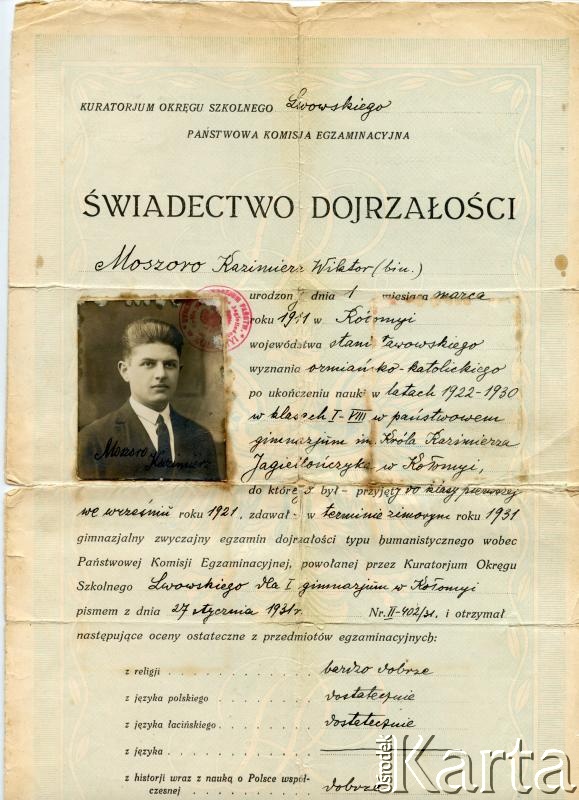 KURATORJUM OKRĘGU SZKOLNEGO Lwowskiego
PAŃSTWOWA KOMISJA EGZAMINACYJNA
ŚWIADECTWO DOJRZAŁOŚCI
Moszoro Kazimierz Wiktor (bin.)
urodzony dnia 1 miesiąca marca
roku 1911 w Kołomyi
województwa stanisławowskiego
wyznania ormiańsko-katolickiego
po ukończeniu nauki w latach 1922-1930
w klasach I-VIII w państwowem
gimnazjum im. Króla Kazimierza
Jagiellończyka w Kołomyi,
do której był - przyjęty do klasy pierwszej
we wrześniu roku 1921, zdawał - w terminie zimowym roku 1931
gimnazjalny zwyczajny egzamin dojrzałości typu humanistycznego wobec
Państwowej Komisji Egzaminacyjnej, powołanej przez Kuratorjum Okręgu
Szkolnego Lwowskiego dla I gimnazjum w Kołomyi
pismem z dnia 27 stycznia 1931 r. Nr. II-402/31, i otrzymał
następujące oceny ostateczne z przedmiotów egzaminacyjnych:
z religji bardzo dobrze
z języka polskiego dostatecznie
z języka łacińskiego dostatecznie
z języka
z historji wraz z nauką o Polsce współ-
czesnej dobrze
Moszoro Kazimierz
Ośrodek Karta